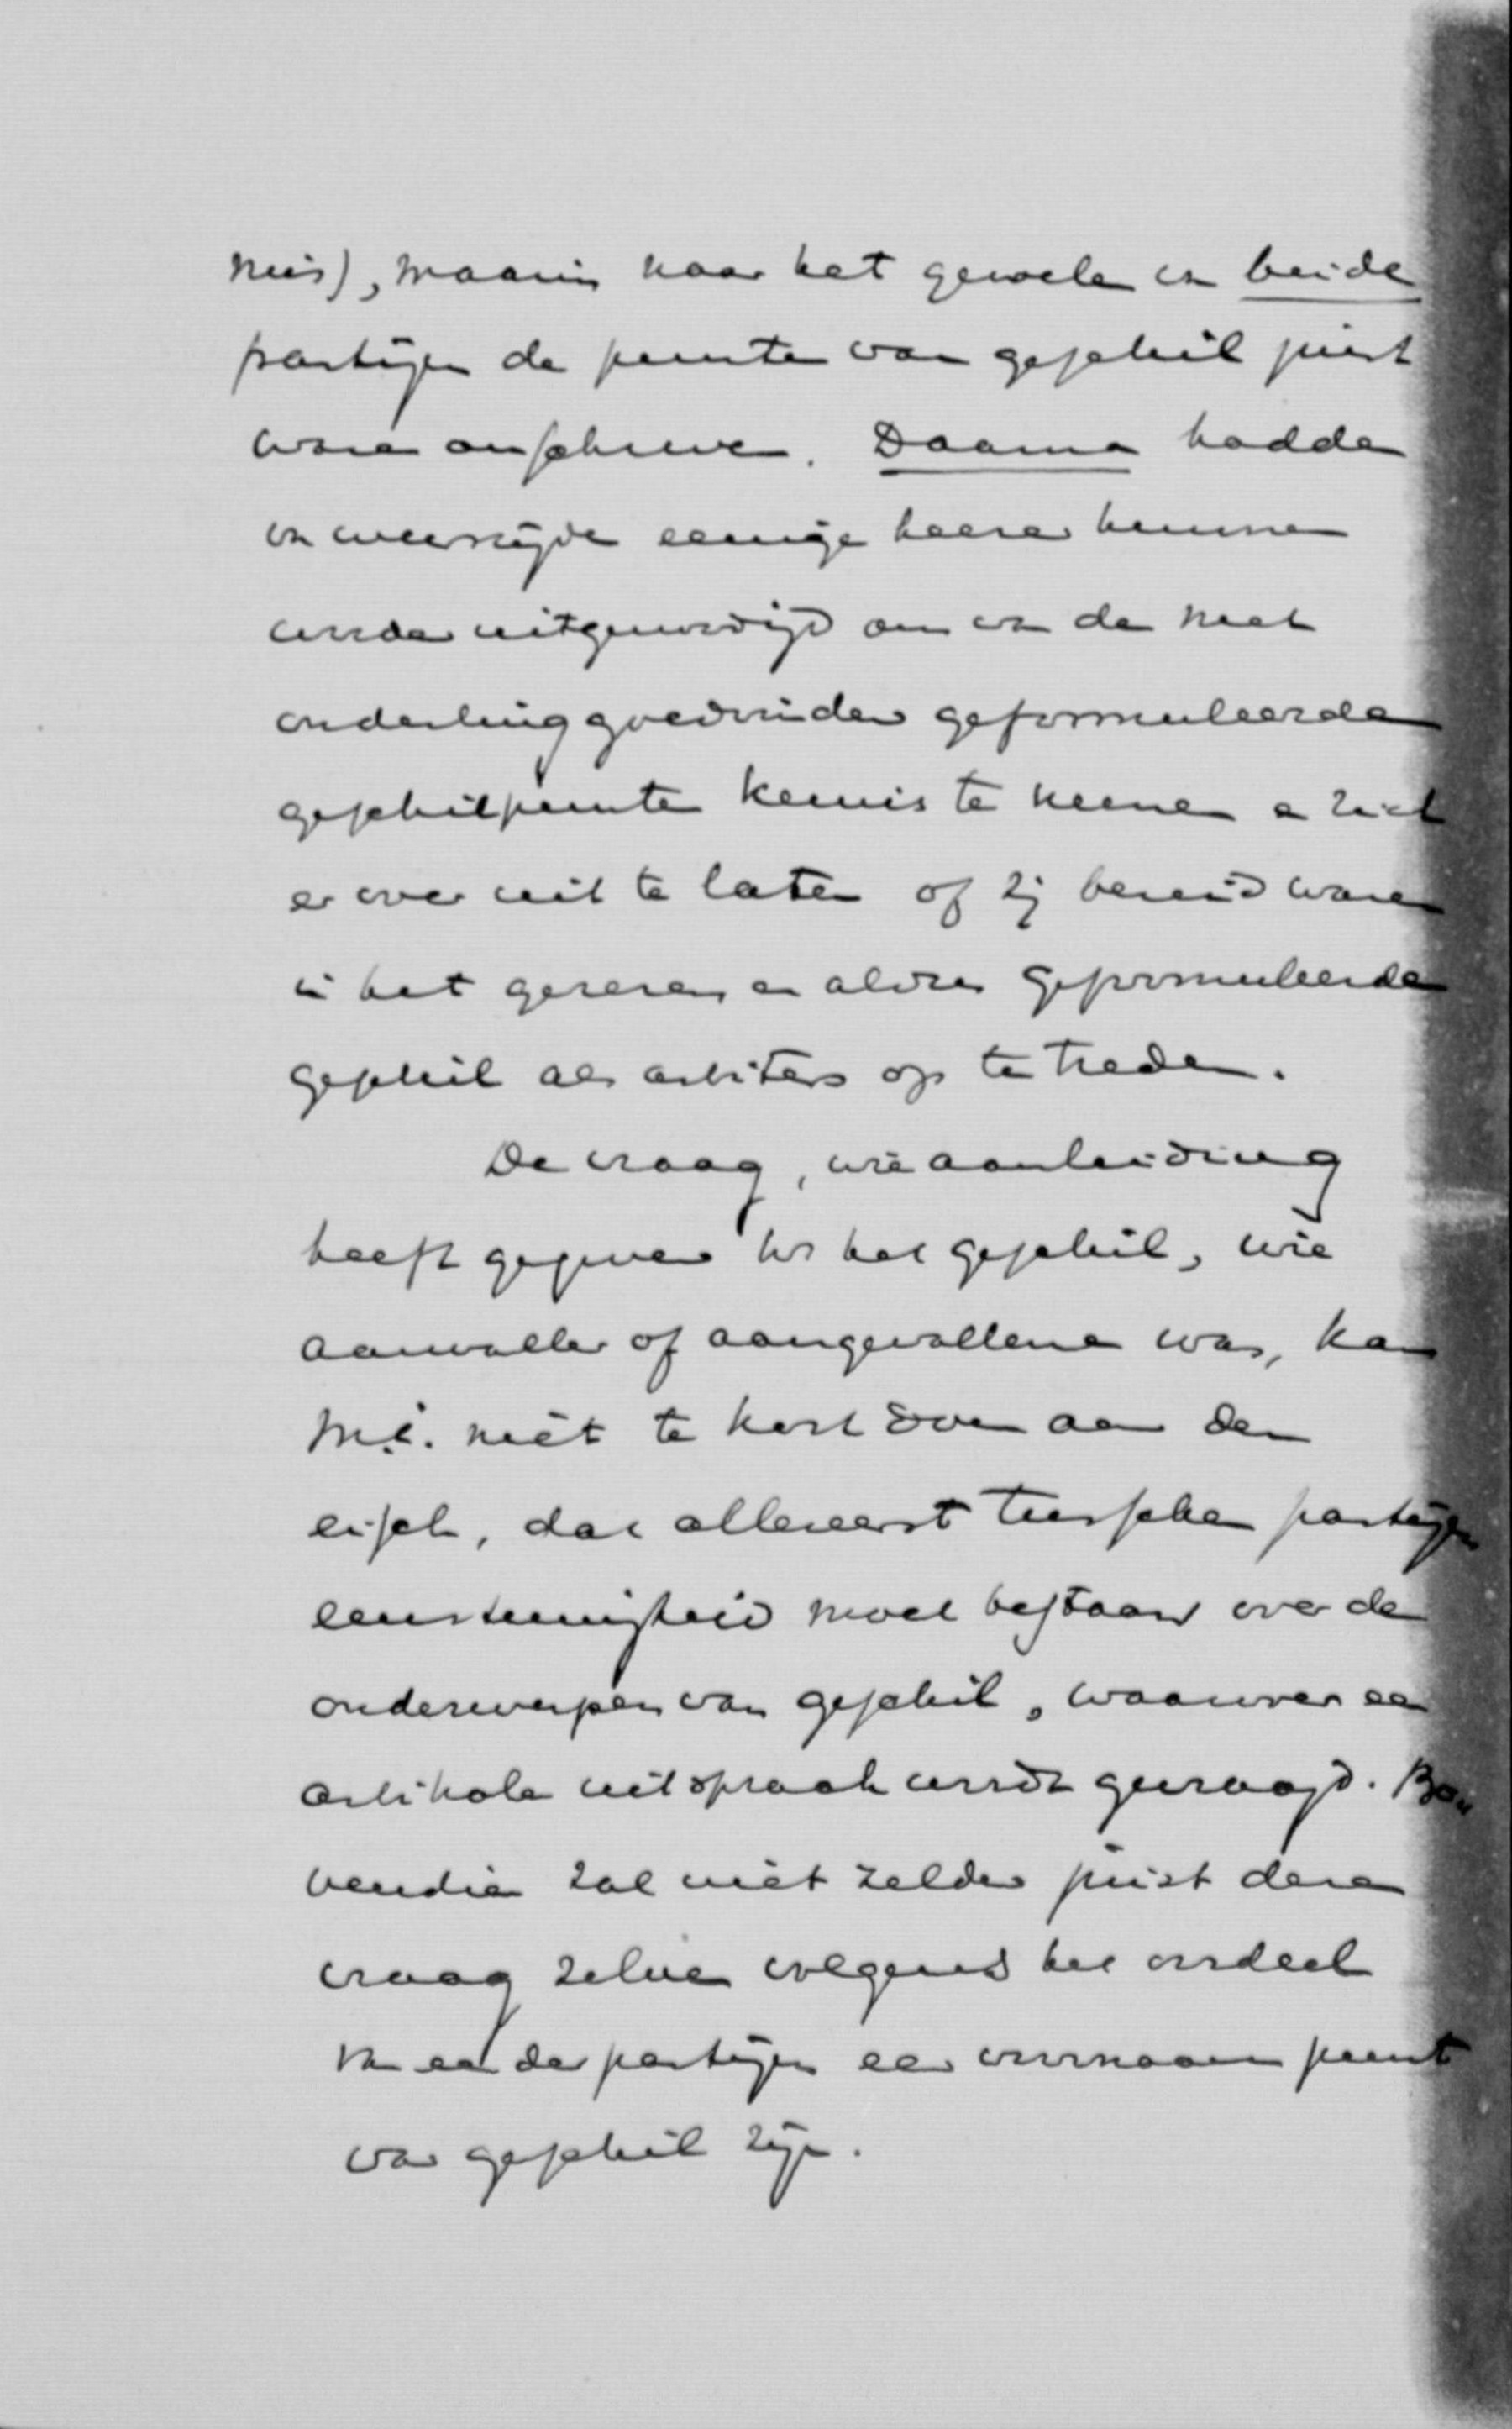 nis), waarin naar het gevoelen van beide
partijen de punten van geschil juist
waren omschreven. Daarna hadden
van weerszijde eenige heeren kunnen
worden uitgenoodigd om van de met
onderling goedvinden geformuleerde
geschilpunten kennis te nemen en zich
er over uit te laten of zij bereid waren
in het gerezen en aldus geformuleerde
geschil als arbiters op te treden.
De vraag, wie aanleiding
heeft gegeven tot het geschil, wie
aanvaller of aangevallene was, kan
m.i. niet te kort doen aan den
eisch, dat allereerst tusschen partijen
eenstemmigheid moet bestaan over de
onderwerpen van geschil, waarover een
arbitrale uitspraak wordt gevraagd. Bo
vendien zal niet zelden juist deze
vraag zelve volgens het oordeel
van een der partijen een voornaam punt
van geschil zijn.